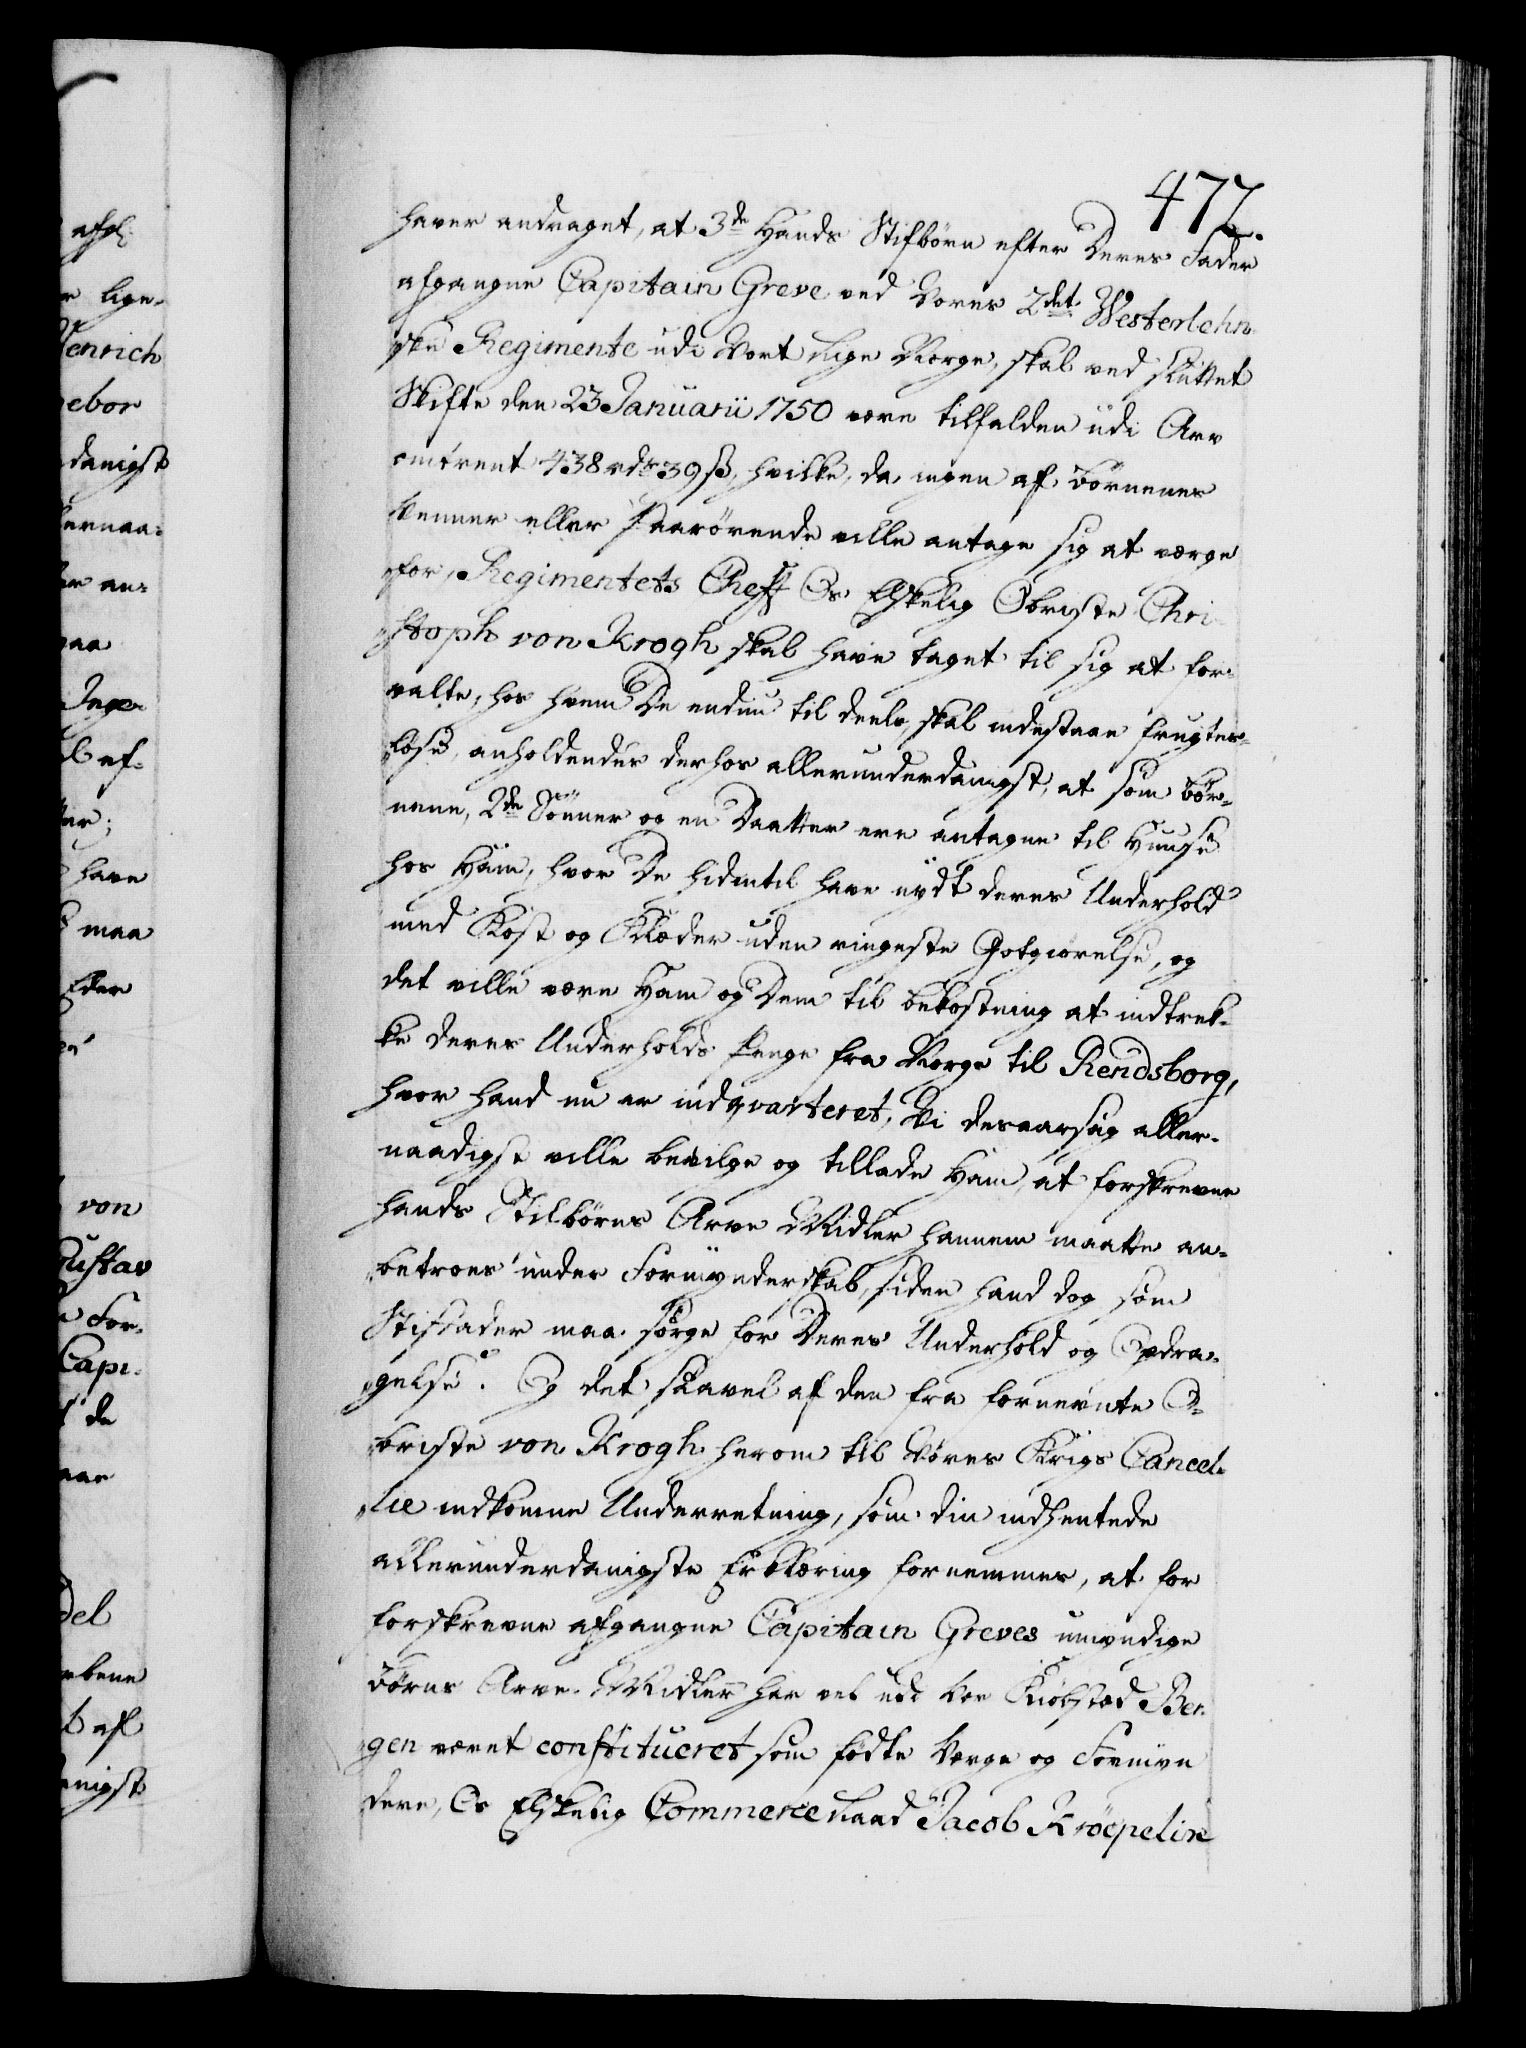 477.
haver andraget, at 3de Hands Stifbörn efter Deres Fader
afgangne Capitain Greve ved Vores 2det Westerlehn-
ske Regimente udi Vort Rige Norge, skal ved sluttet
Skifte den 23 Januarii 1750 være tilfalden udi Arv
omtrent 438 rdr 39 ß, hvilke, da ingen af Börnenes
Venner eller Paarörende ville antage sig at værge
for, Regimentets Cheff Os Elskelig Obriste Chri-
stoph von Krogh skal have taget til sig at for-
valte, hos hvem De endnu til deels skal indestaae frugtes-
löse, anholdendes derhos allerunderdanigst, at som Bör-
nene, 2de Sönner og en Daatter ere antagne til Huuse
hos Ham, hvor De hidintil have nydt deres Underhold
med Kost og Klæder uden ringeste Gotgiörelse, og
det ville være Ham og Dem til bekostning at indtræk-
ke deres Underholds Penge fra Norge til Rendsborg,
hvor Hand nu er indqvarteret, Vi desaarsag aller-
naadigst ville bevilge og tillade Ham, at forskrevne
Hands Stifbörns Arve Midler hannem maatte an-
betroes under Formynderskab, siden Hand dog som
Stiffader maa sörge for Deres Underhold og Opdra-
gelse. Og det saavel af den fra fornevnte O-
briste von Krogh herom til Vores Krigs Cancel-
lie indkomne Underretning, som din indhentede
allerunderdanigste Erklæring fornemmes, at for
forskrevne afgangne Capitain Greves umyndige
Börns Arve Midler har vel udi vor Kiöbstad Ber-
gen været constitueret som födte Værge og Formyn
dere, Os Elskelig Commerce Raad Jacob Kröepelin